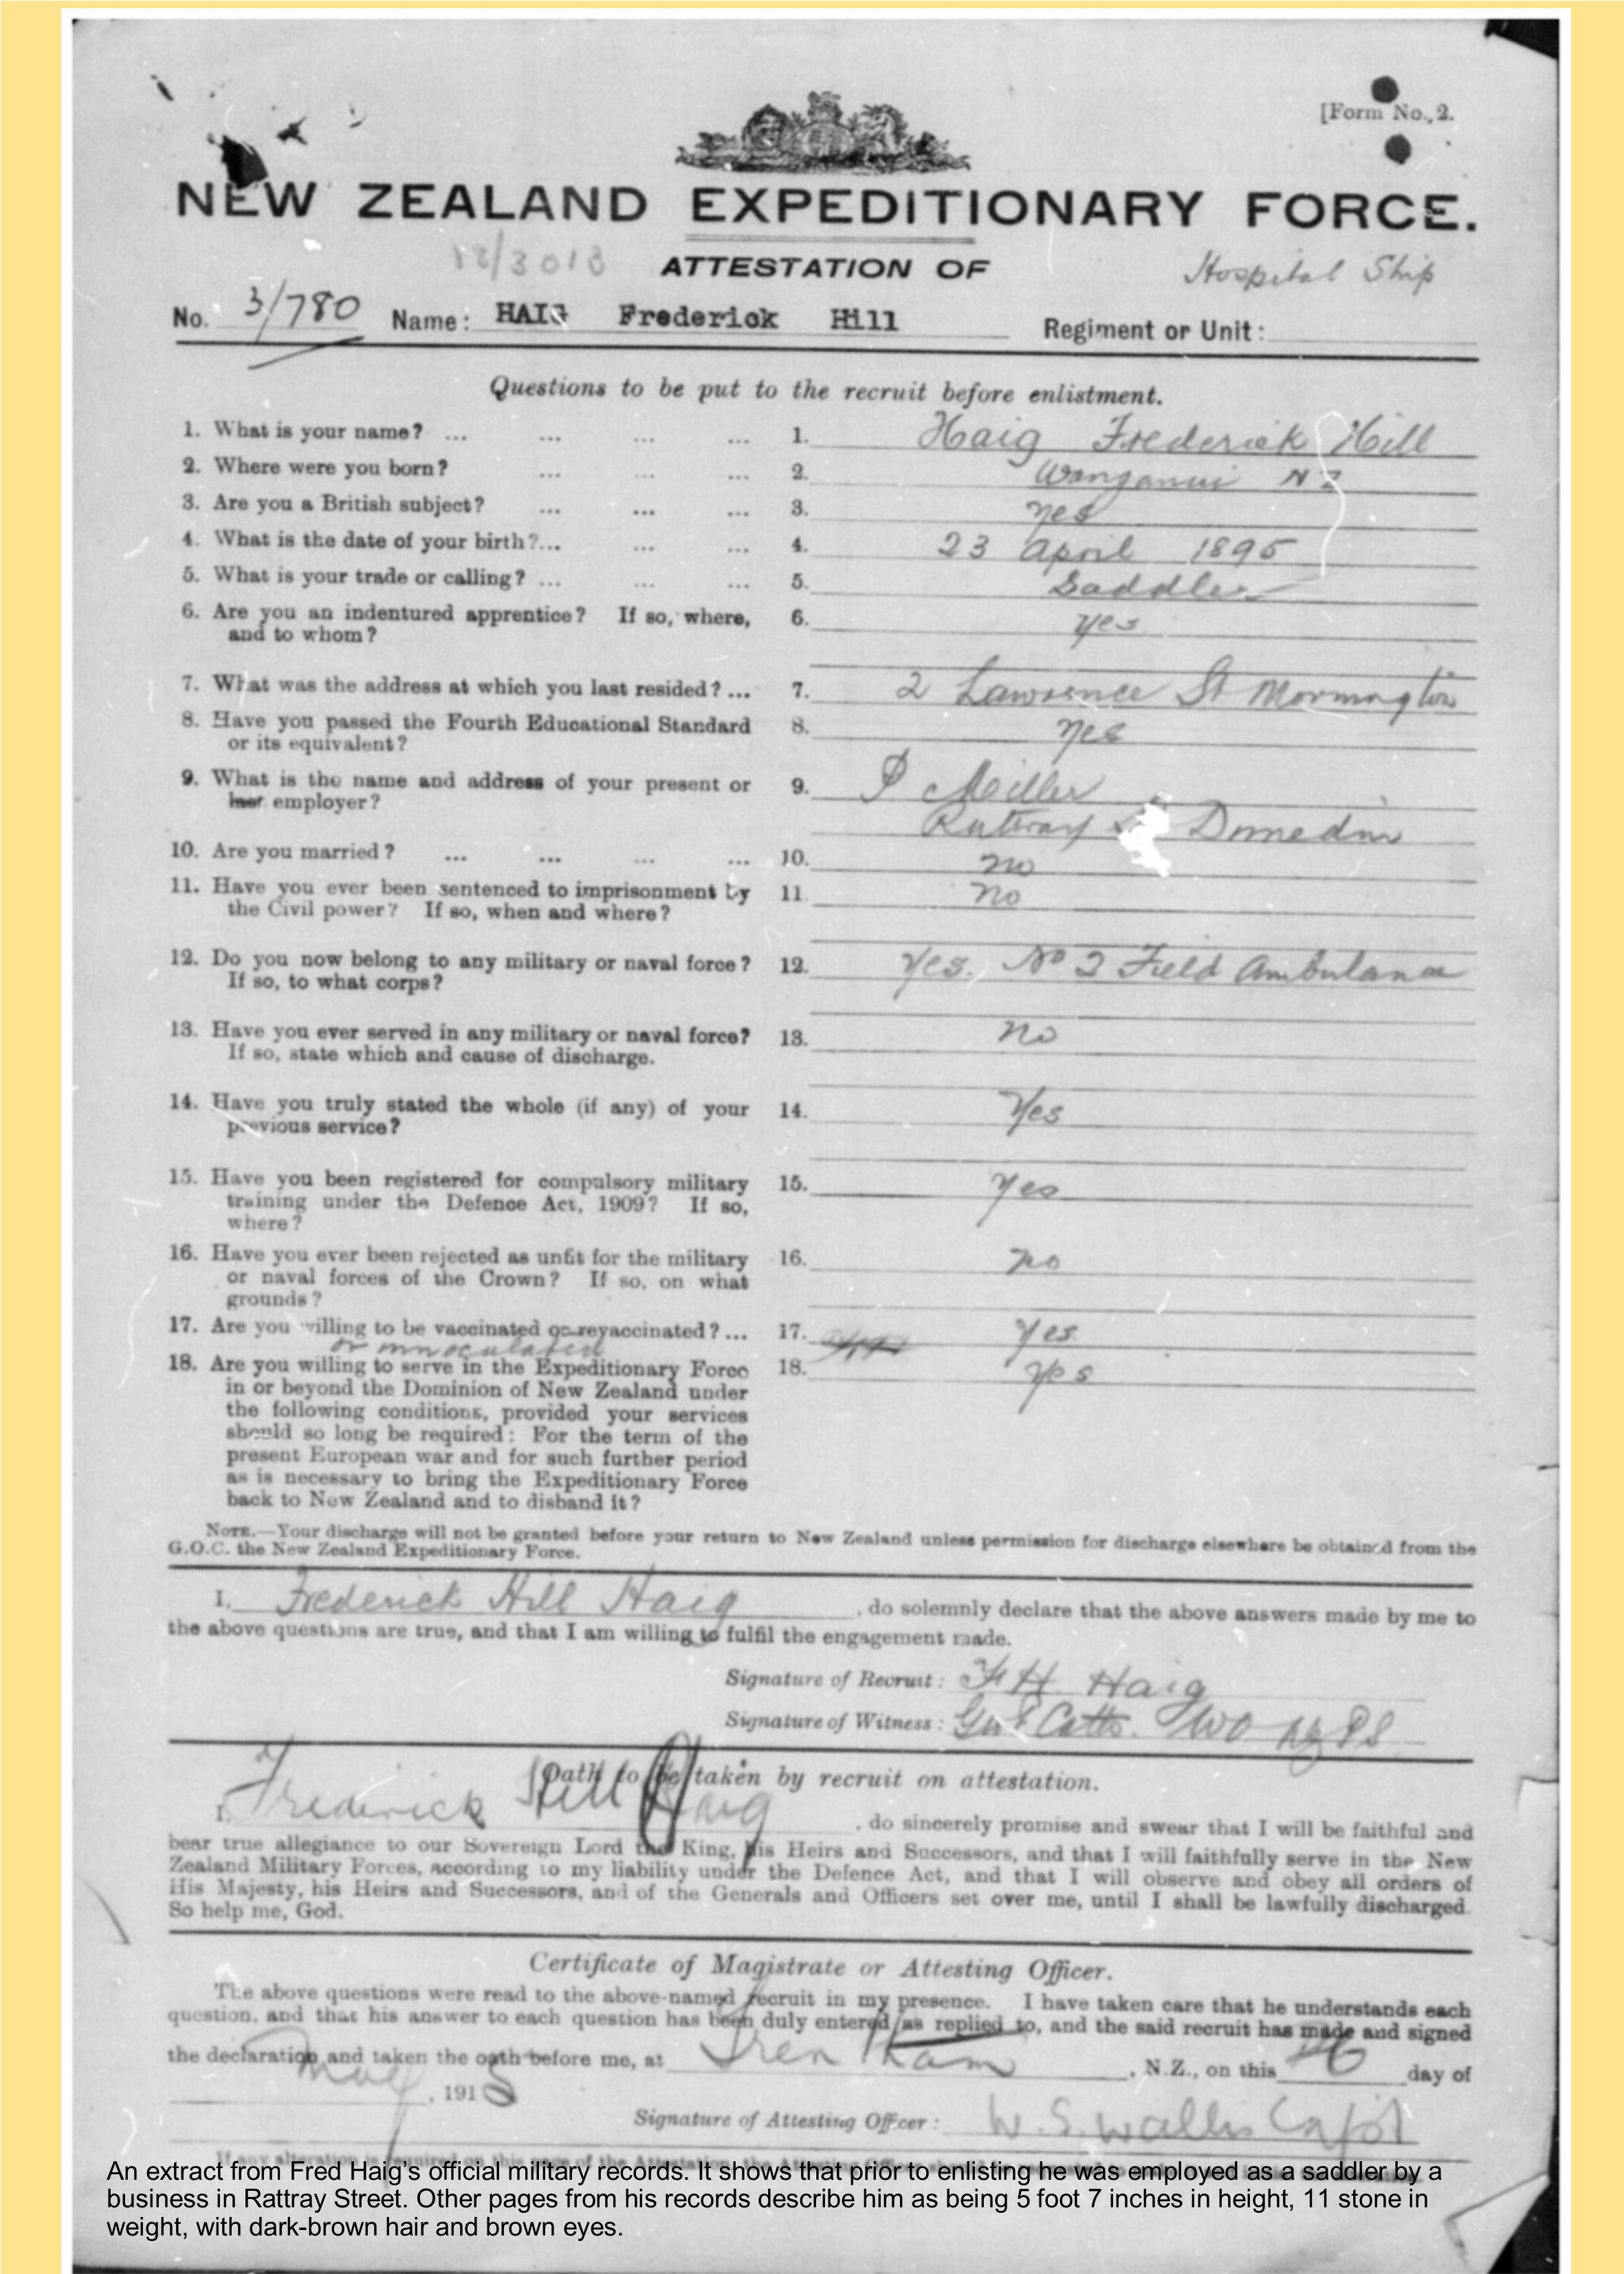 [Form No. 2.
NEW ZEALAND EXPEDITIONARY FORCE.
ATTESTATION OF
Hospital Ship
No. 3/780 Name: HAIG Frederick Hill Regiment or Unit:
Questions to be put to the recruit before enlistment.
1. What is your name? ... ... ... ... 1. Haig Frederick Hill
2. Where were you born? ... ... ... 2. Wanganui NZ
3. Are you a British subject? ... ... ... 3. Yes
4. What is the date of your birth?... ... ... 4. 23 April 1895
5. What is your trade or calling? ... ... ... 5. Saddler
6. Are you an indentured apprentice? If so, where, 6. Yes
and to whom?
7. What was the address at which you last resided? ... 7. 2 Lawrence St Mornington
8. Have you passed the Fourth Educational Standard 8. Yes
or its equivalent?
9. What is the name and address of your present or 9. P Miller
last employer? Rattray St Dunedin
10. Are you married? ... ... ... ... 10. no
11. Have you ever been sentenced to imprisonment by 11. no
the Civil power? If so, when and where?
12. Do you now belong to any military or naval force? 12. Yes. No 2 Field Ambulance
If so, to what corps?
13. Have you ever served in any military or naval force? 13. no
If so, state which and cause of discharge.
14. Have you truly stated the whole (if any) of your 14. Yes
previous service?
15. Have you been registered for compulsory military 15. Yes
training under the Defence Act, 1909? If so,
where?
16. Have you ever been rejected as unfit for the military 16. no
or naval forces of the Crown? If so, on what
grounds?
17. Are you willing to be vaccinated or revaccinated? ... 17. Yes
or innoculated
18. Are you willing to serve in the Expeditionary Force 18. Yes
in or beyond the Dominion of New Zealand under
the following conditions, provided your services
should so long be required: For the term of the
present European war and for such further period
as is necessary to bring the Expeditionary Force
back to New Zealand and to disband it?
NOTE.—Your discharge will not be granted before your return to New Zealand unless permission for discharge elsewhere be obtained from the
G.O.C. the New Zealand Expeditionary Force.
I, Frederick Hill Haig, do solemnly declare that the above answers made by me to
the above questions are true, and that I am willing to fulfil the engagement made.
Signature of Recruit: F H. Haig
Signature of Witness: Catto. WO
Oath to be taken by recruit on attestation.
I, Frederick Hill Haig, do sincerely promise and swear that I will be faithful and
bear true allegiance to our Sovereign Lord the King, his Heirs and Successors, and that I will faithfully serve in the New
Zealand Military Forces, according to my liability under the Defence Act, and that I will observe and obey all orders of
His Majesty, his Heirs and Successors, and of the Generals and Officers set over me, until I shall be lawfully discharged.
So help me, God.
Certificate of Magistrate or Attesting Officer.
The above questions were read to the above-named recruit in my presence. I have taken care that he understands each
question, and that his answer to each question has been duly entered as replied to, and the said recruit has made and signed
the declaration and taken the oath before me, at Trentham, N.Z., on this 26 day of
May, 1915
Signature of Attesting Officer: W. S. Wallis Capt
An extract from Fred Haig's official military records. It shows that prior to enlisting he was employed as a saddler by a
business in Rattray Street. Other pages from his records describe him as being 5 foot 7 inches in height, 11 stone in
weight, with dark-brown hair and brown eyes.